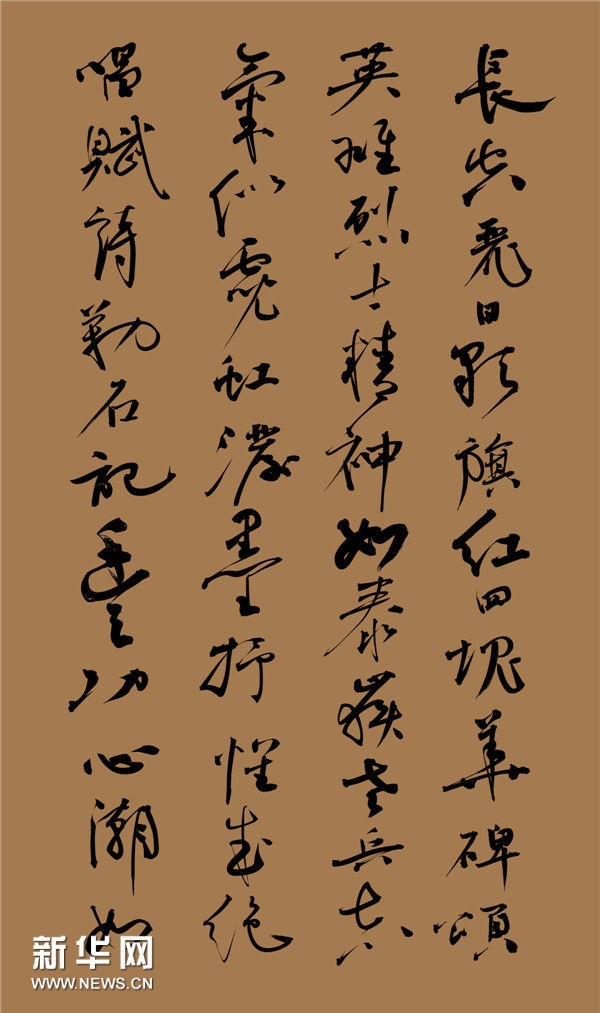 長空麗日旗紅四塊華碑頌
英雄烈士精神如泰嶽老兵真
氣似霓虹濃墨抒懷成絕
唱賦詩勒石記豐功心潮如
新华网
WWW.NEWS.CN